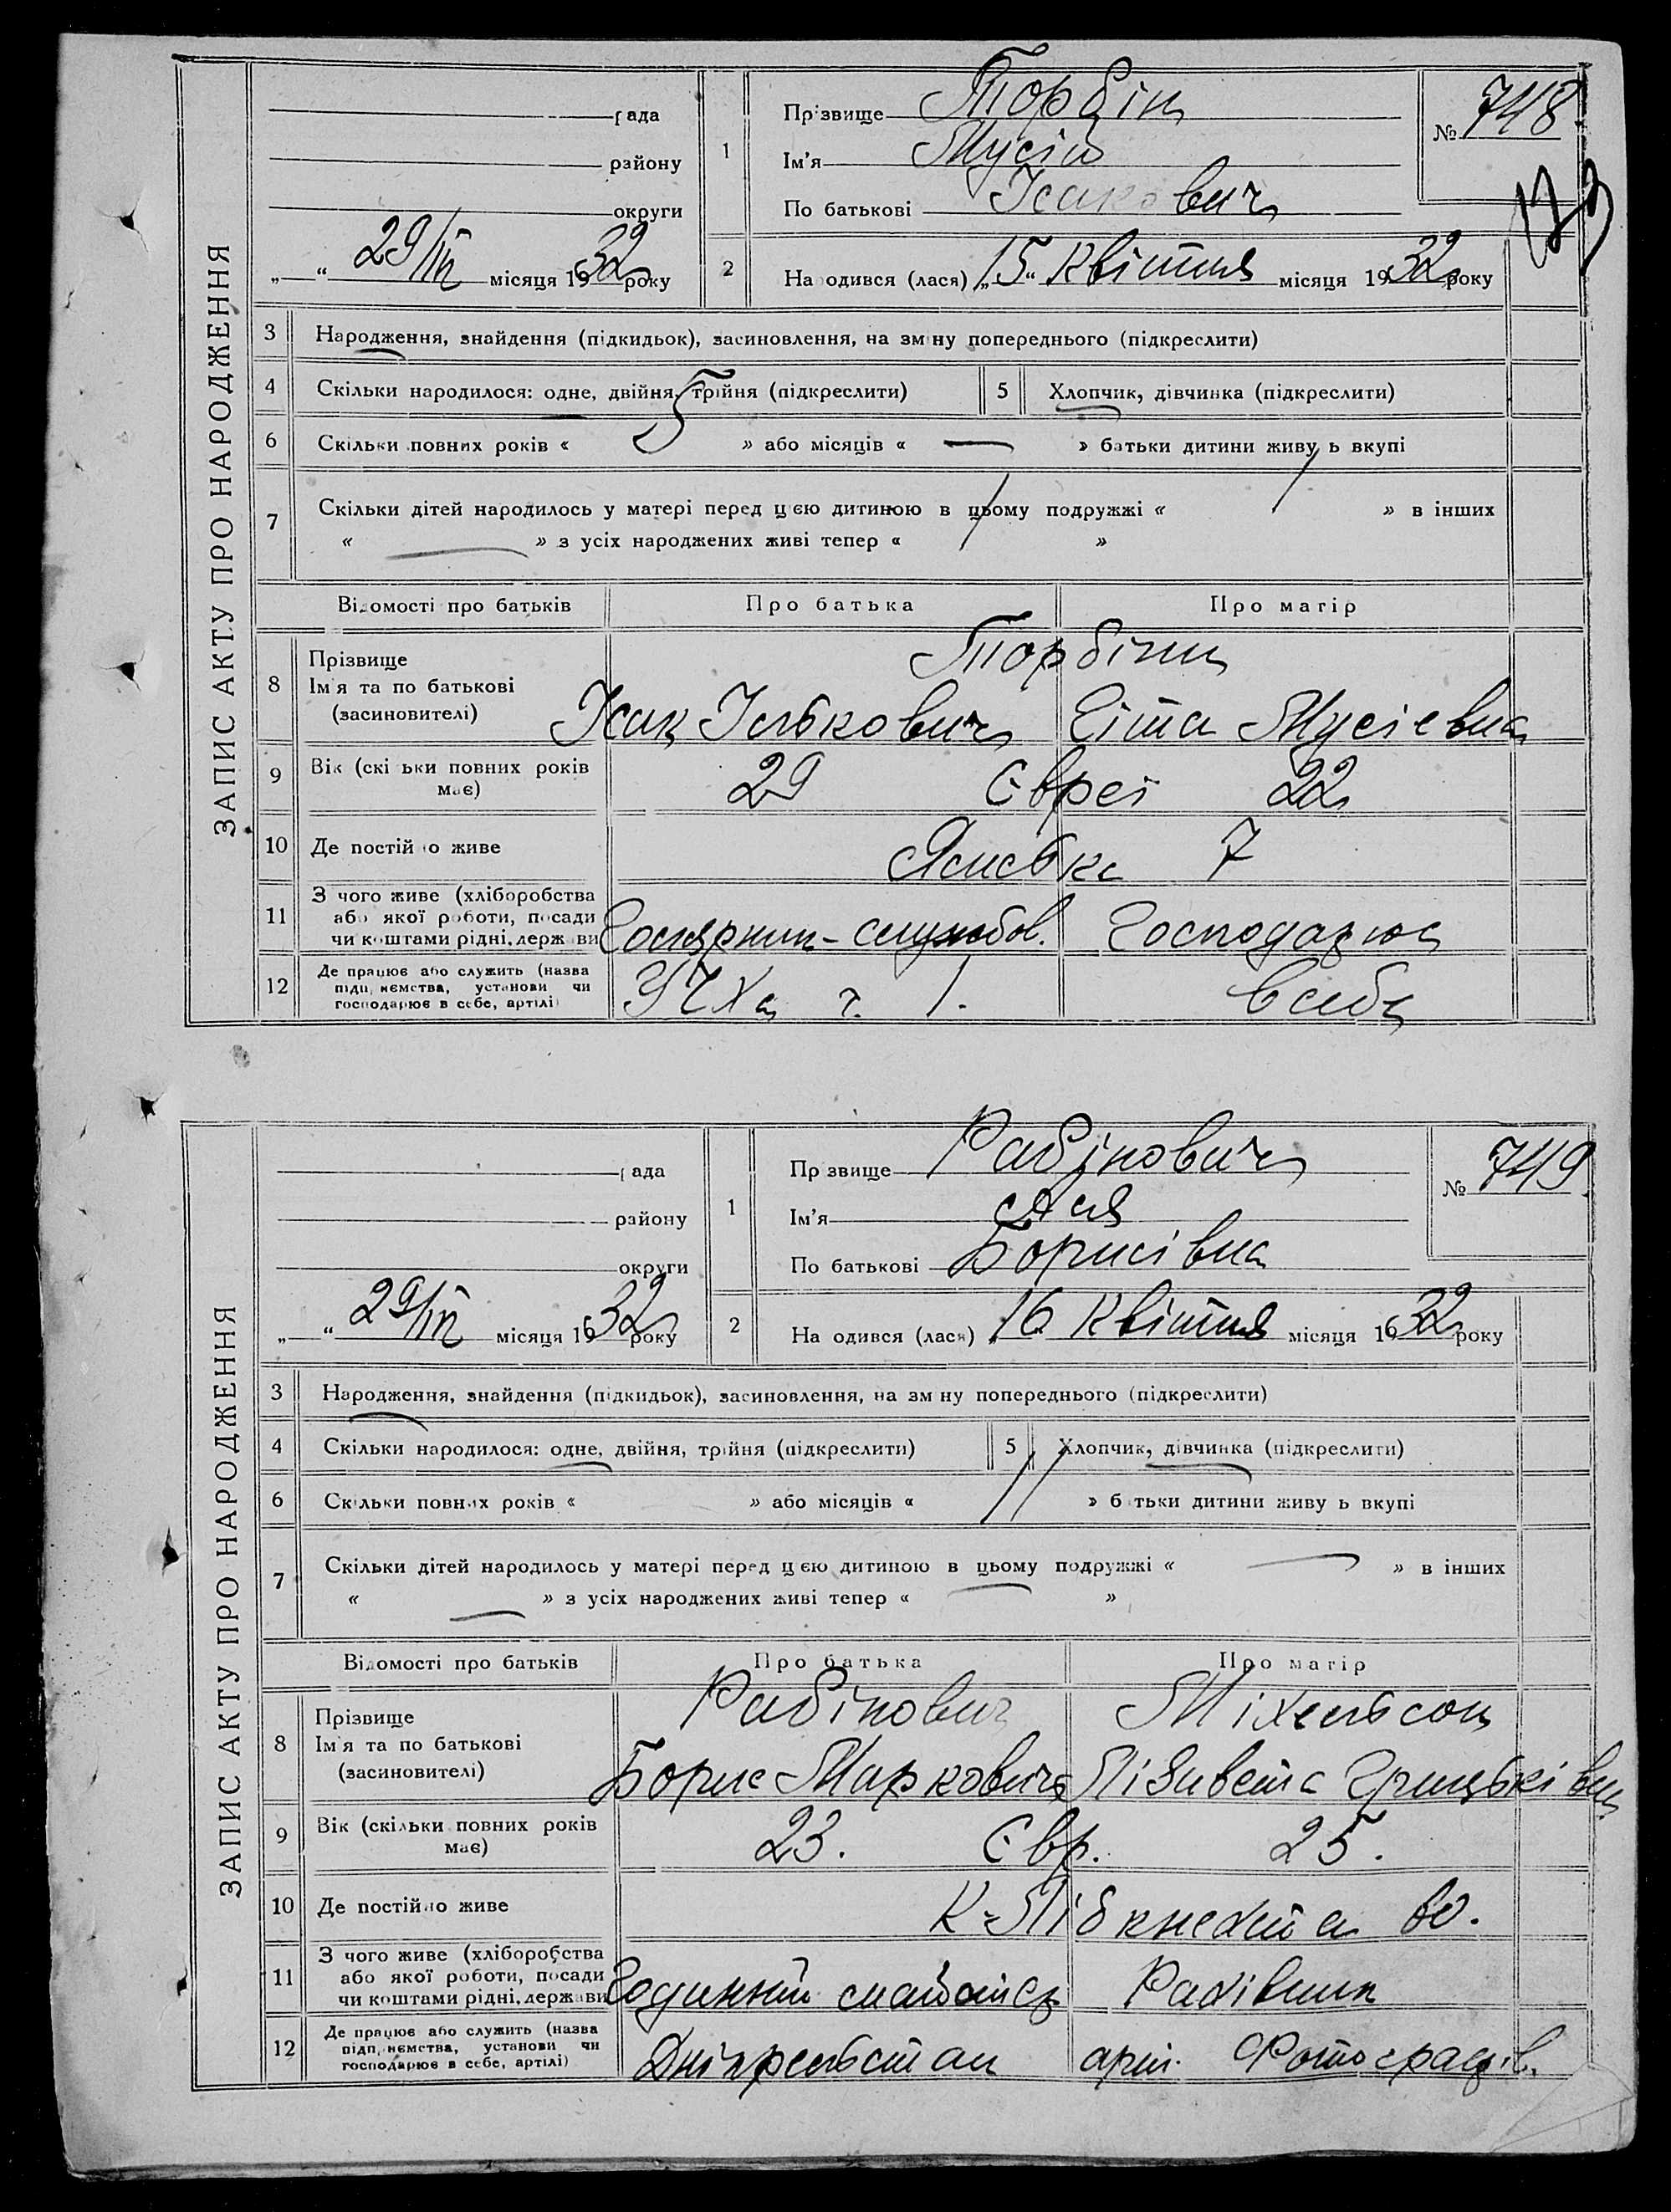 ЗАПИС АКТУ ПРО НАРОДЖЕННЯ
рада
району
округи
„ “ 29/IV місяця 1932 року
1
Прізвище Торбін
Ім'я Мусій
По батькові Ісакович
№ 748
173
2
Народився (лася) „15“ Квітня місяця 1932 року
3 Народження, знайдення (підкидьок), засиновлення, на зміну попереднього (підкреслити)
4 Скільки народилося: одне, двійня, трійня (підкреслити)
5 Хлопчик, дівчинка (підкреслити)
6 Скільки повних років « 5 » або місяців « — » батьки дитини живуть вкупі
7 Скільки дітей народилось у матері перед цією дитиною в цьому подружжі « / » в інших
« — » з усіх народжених живі тепер « / »
Відомості про батьків
Про батька
Про матір
8 Прізвище
Ім'я та по батькові
(засиновителі)
Торбіни
Ісак Ількович
Еіта Мусієвна
9 Вік (скільки повних років має)
29 Євреї 22
10 Де постійно живе
7
11 З чого живе (хліборобства
або якої роботи, посади
чи коштами рідні, держави
службов.
Господарює
12 Де працює або служить (назва
підприємства, установи чи
господарює в себе, артілі)
ч. 1.
в себе
ЗАПИС АКТУ ПРО НАРОДЖЕННЯ
рада
району
округи
„ “ 29/IV місяця 1932 року
1
Прізвище Рабінович
Ім'я Ася
По батькові Борисівна
№ 749
2
Народився (лася) 16 Квітня місяця 1932 року
3 Народження, знайдення (підкидьок), засиновлення, на зміну попереднього (підкреслити)
4 Скільки народилося: одне, двійня, трійня (підкреслити)
5 Хлопчик, дівчинка (підкреслити)
6 Скільки повних років « » або місяців « 11 » батьки дитини живуть вкупі
7 Скільки дітей народилось у матері перед цією дитиною в цьому подружжі « — » в інших
« — » з усіх народжених живі тепер « — »
Відомості про батьків
Про батька
Про матір
8 Прізвище
Ім'я та по батькові
(засиновителі)
Рабінович
Міхельсон
Борис Маркович
Лізавета Грицьківна
9 Вік (скільки повних років має)
23. Євр. 25.
10 Де постійно живе
К-Лібкнехта
11 З чого живе (хліборобства
або якої роботи, посади
чи коштами рідні, держави
Рахівник
12 Де працює або служить (назва
підприємства, установи чи
господарює в себе, артілі)
Дніпрельстан
арт. Фотографів.